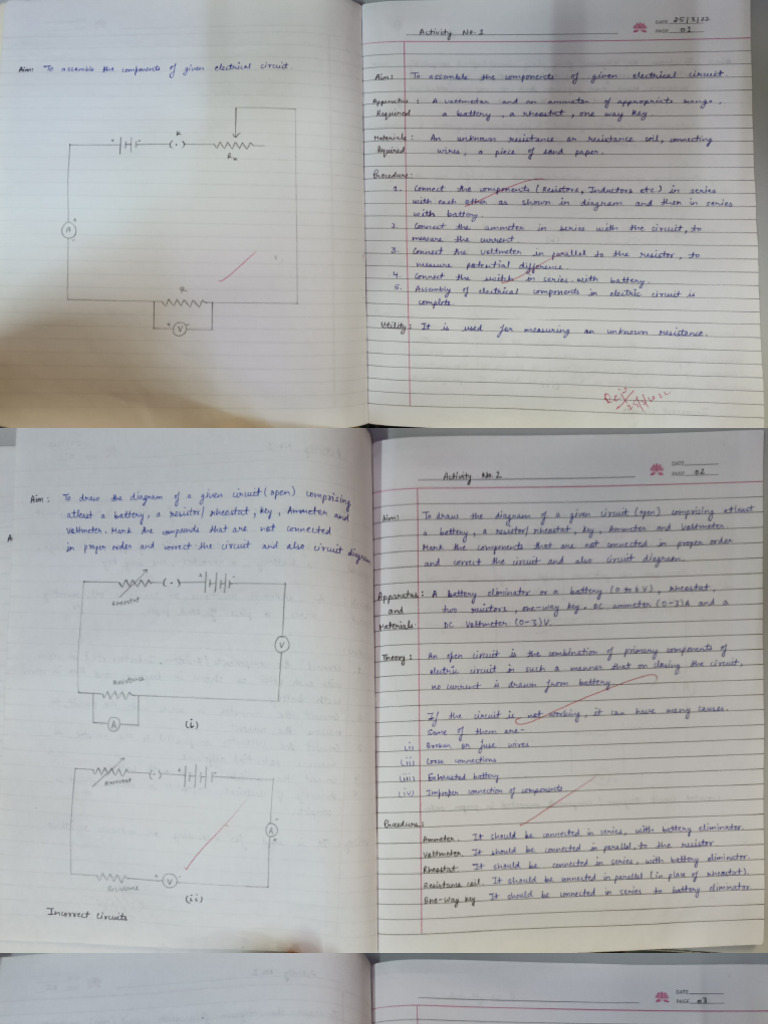 Aim: To assemble the components of given electrical circuit.
K
Rh
A
R
V
Activity No.1
DATE 25/3/22
PAGE 01
Aim: To assemble the components of given electrical circuit.
Apparatus : A voltmeter and an ammeter of appropriate range,
Required a battery, a rheostat, one way key.
Materials : An unknown resistance or resistance coil, connecting
Required wires, a piece of sand paper.
Procedure:
1. Connect the components (Resistors, Inductors etc) in series
with each other as shown in diagram and then in series
with battery.
2. Connect the ammeter in series with the circuit, to
measure the current
3. Connect the voltmeter in parallel to the resistor, to
measure potential difference.
4. Connect the switch in series with battery.
5. Assembly of electrical components in electric circuit is
complete.
Utility: It is used for measuring an unknown resistance.
Aim: To draw the diagram of a given circuit (open) comprising
atleast a battery, a resistor/rheostat, key, Ammeter and
Voltmeter. Mark the compounds that are not connected
in proper order and correct the circuit and also circuit diagram
A
Rheostat
V
Resistance
A
(i)
Rheostat
A
Resistance
V
(ii)
Incorrect Circuits
Activity No.2
DATE
PAGE 02
Aim: To draw the diagram of a given circuit (open) comprising atleast
a battery, a resistor/rheostat, key, Ammeter and Voltmeter.
Mark the components that are not connected in proper order
and correct the circuit and also circuit diagram.
Apparatus : A battery eliminator or a battery (0 to 6V), rheostat,
and two resistors, one-way key, DC ammeter (0-3)A and a
Materials. DC Voltmeter (0-3)V.
Theory: An open circuit is the combination of primary components of
electric circuit in such a manner that on closing the circuit,
no current is drawn from battery
If the circuit is not working, it can have many causes.
Some of them are-
(i) Broken or fuse wires
(ii) Loose connections
(iii) Exhausted battery
(iv) Improper connection of components
Procedure:
Ammeter. It should be connected in series, with battery eliminator.
Voltmeter. It should be connected in parallel, to the resistor
Rheostat. It should be connected in series, with battery eliminator.
Resistance coil. It should be connected in parallel (in place of rheostat).
One-way key It should be connected in series to battery eliminator
DATE
PAGE 03